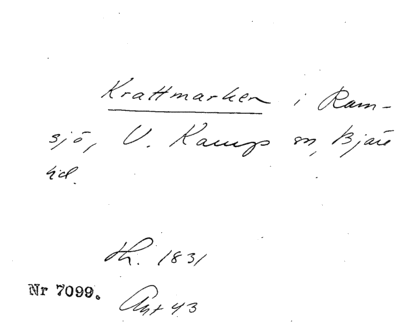 Krattmarken i Ram-
sjö, V. Karup sn, Bjäre
hd.
th. 1831
Nr 7099. Akt 43